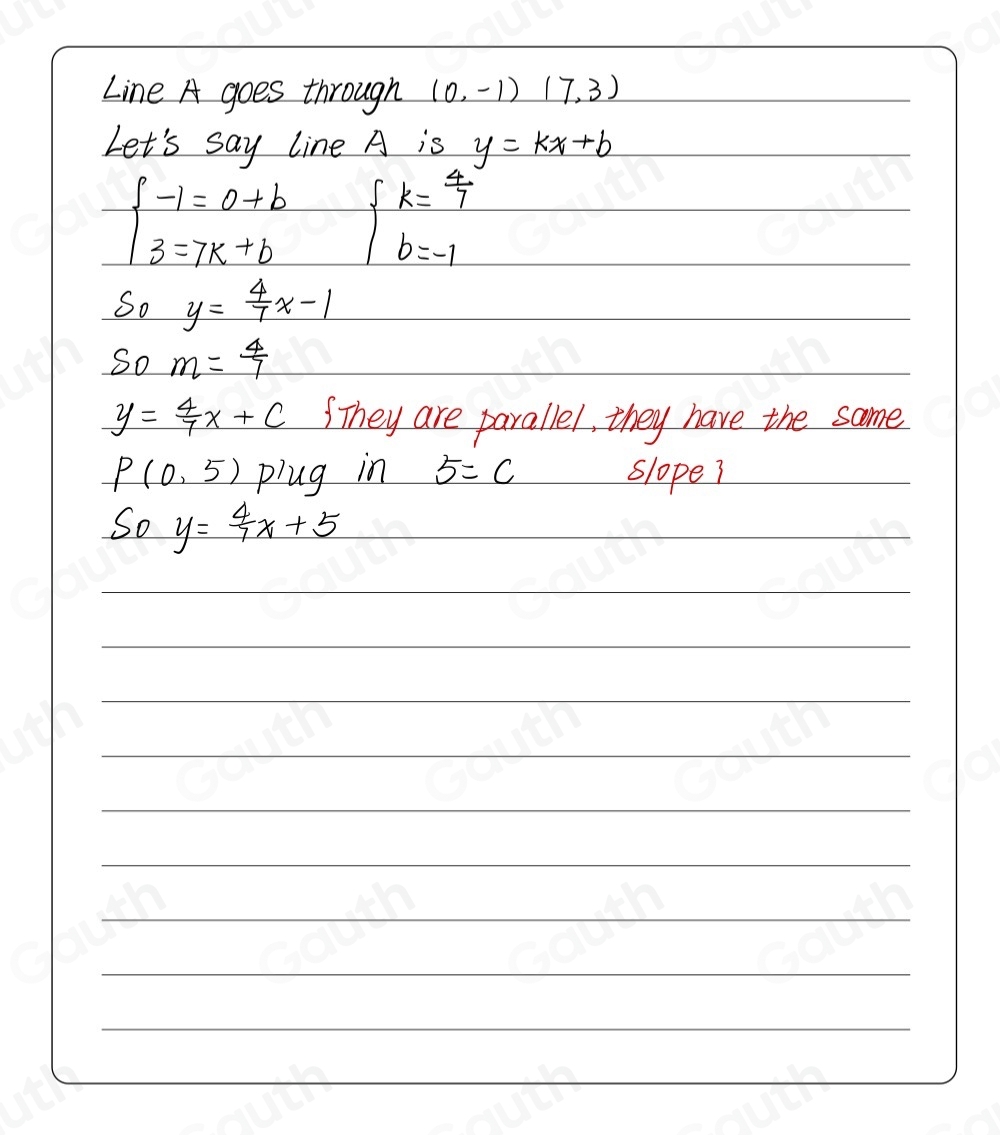 Line A goes through (0,-1) (7,3)
Let's say line A is y = kx+b
{ -1 = 0+b { k = 4/7
3 = 7k+b b = -1
So y = 4/7 x - 1
So m = 4/7
y = 4/7 x + C {They are parallel, they have the same
P(0, 5) plug in 5 = C slope}
So y = 4/7 x + 5
Gauth